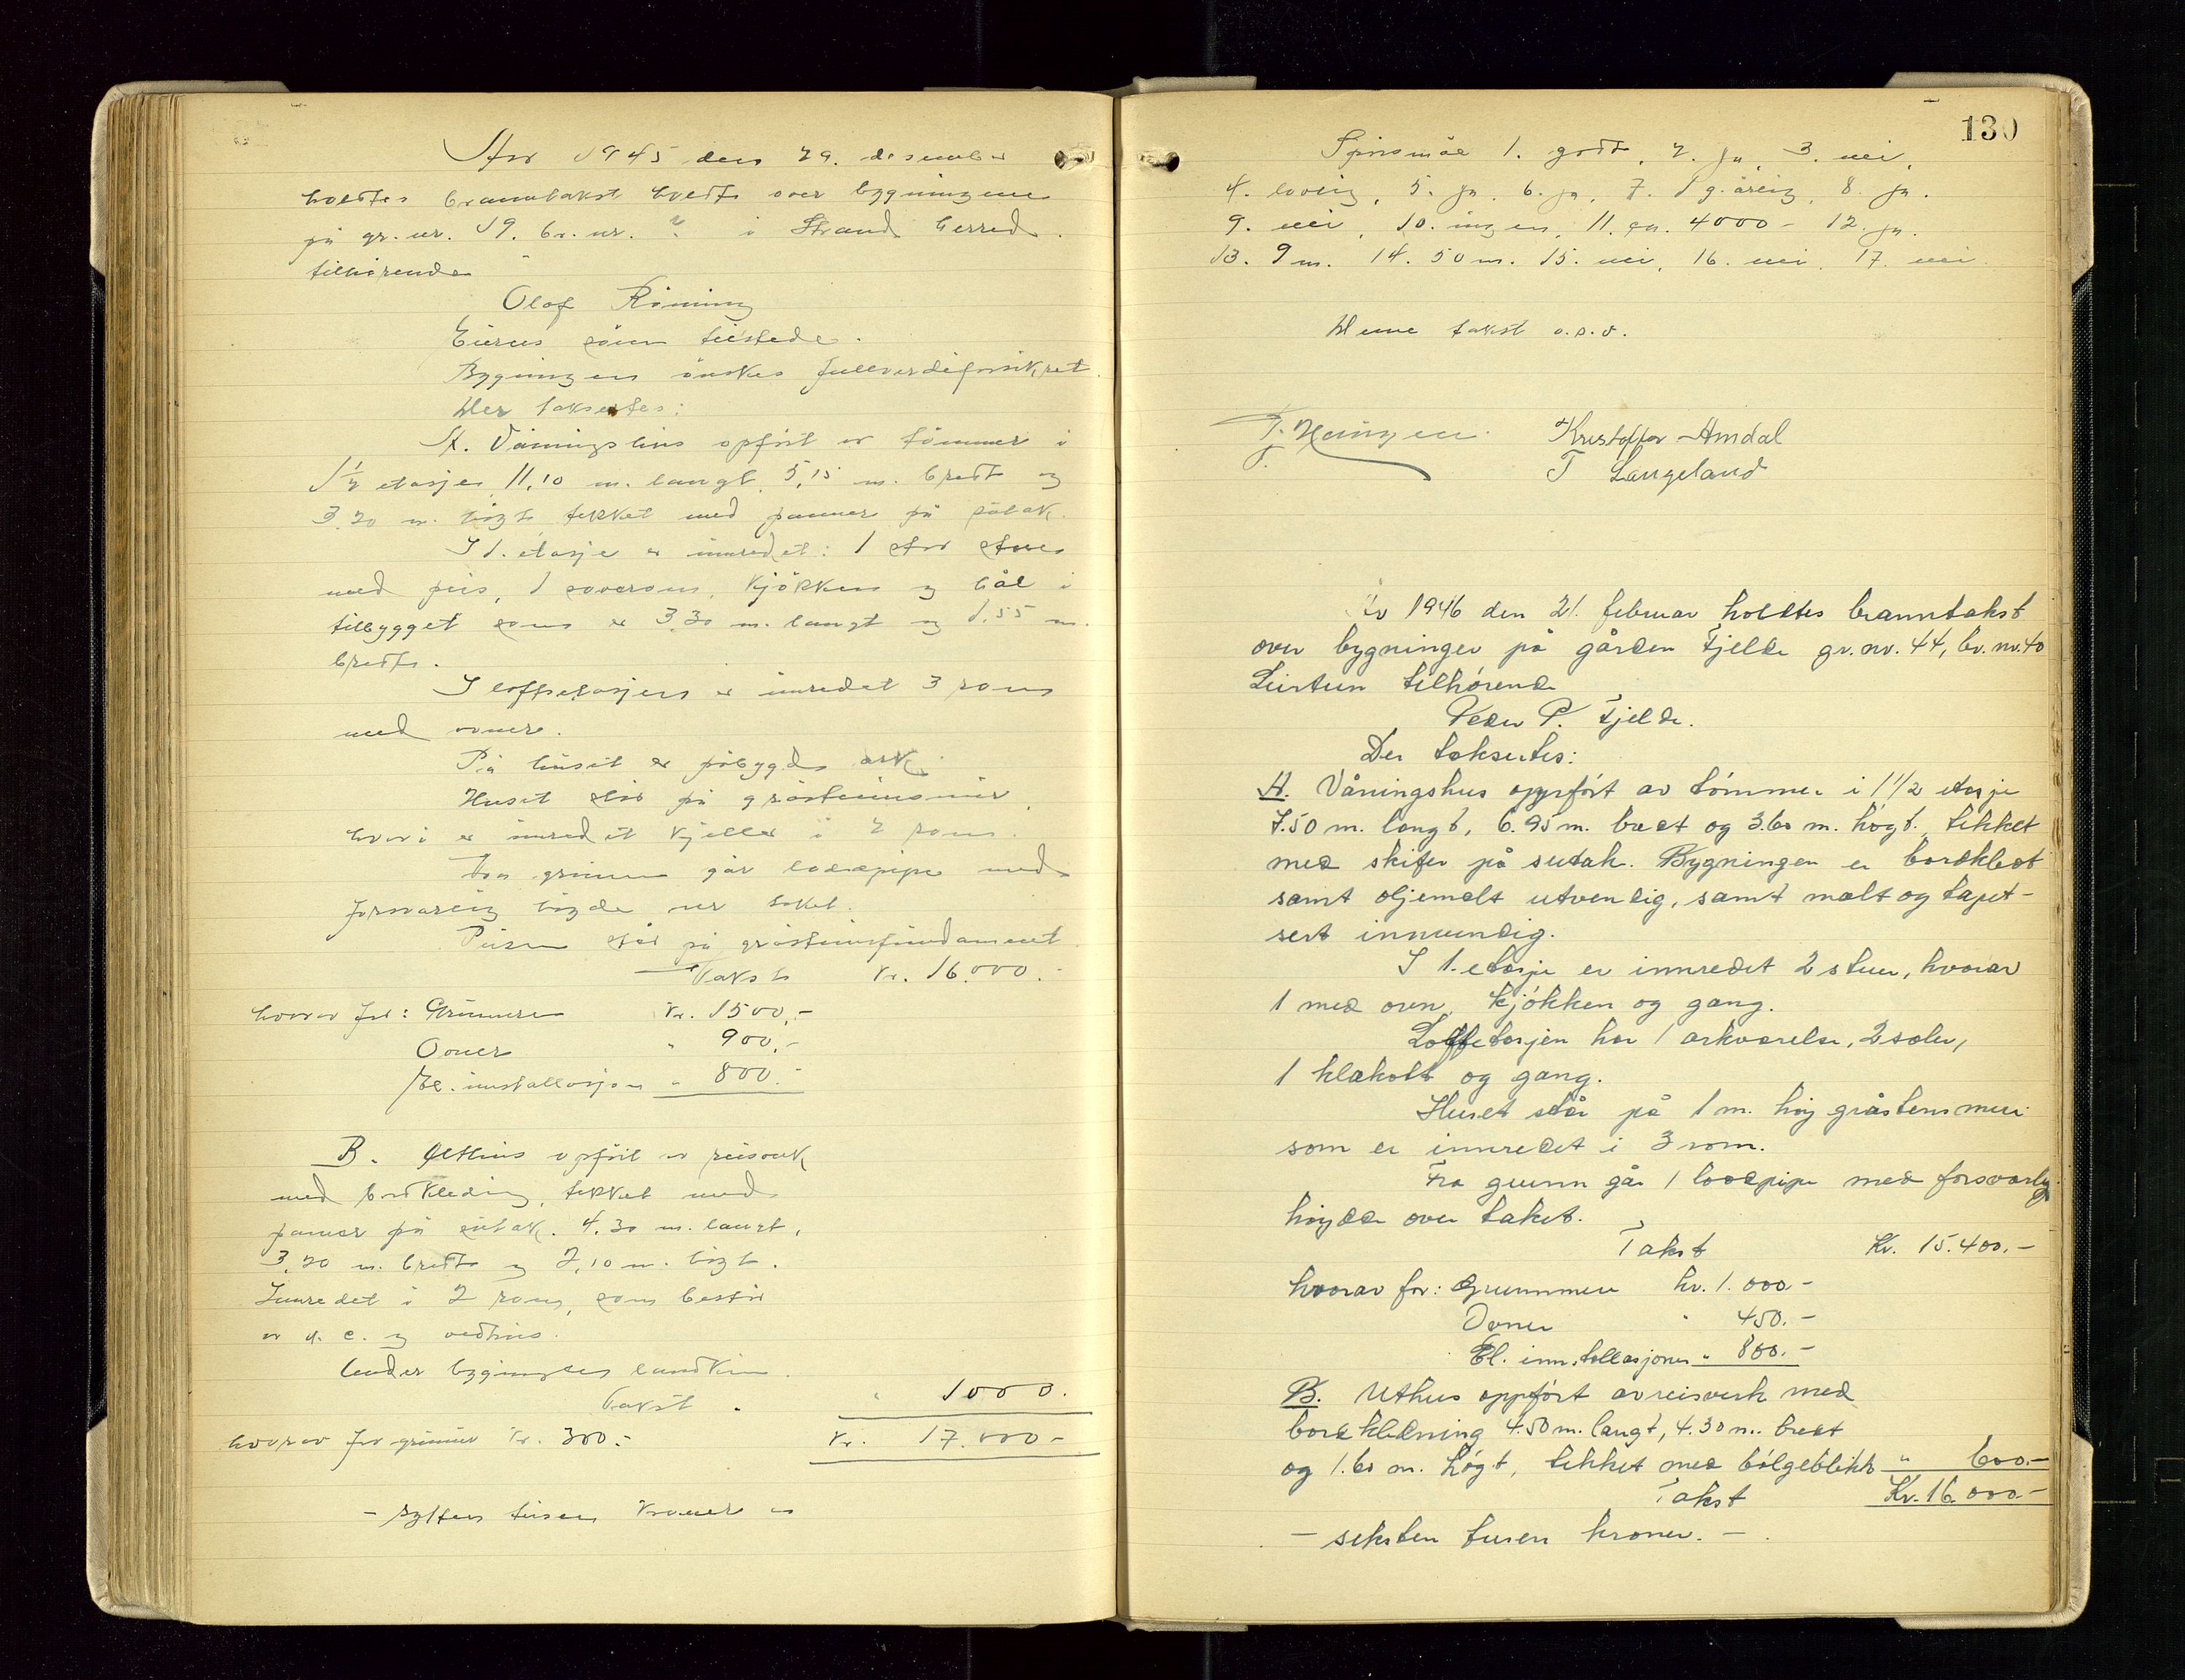 År 1945 den 29. desember
holdtes branntakst holdt over bygningene
på gr. nr. 19. br. nr. ? i Strand herred.
tilhørende
Olaf Röining
Eieren som tilstede.
Bygningen önskes fullverdiforsikret.
Der takseertes:
A. Våningshus opfört av tömmer i
1½ etasjer 11,10 m. langt, 5,15 m. bredt og
3,20 m. högt tekket med panner på sutak.
I 1. etasje er innredet: 1 stor stue
med peis, 1 soverom, kjökken og hål i
tilbygget som er 3,30 m. langt og 1,55 m.
bredt.
I loftsetasjen er innredet 3 rom
med ovner.
På huset er påbygd ark.
Huset står på gråsteinsmur
hvori er innredet kjeller i 2 rom.
Fra grunnen går loddpipe med
forsvarlig högde over taket.
Peisen står på gråsteinsfundament
Takst kr. 16.000.-
hvorav for: Grunnmuren kr. 1500,-
Ovner " 900,-
El. installasjon " 800.-
B. Uthus opfört av reisverk
med bordkledning, tekket med
panner på sutak. 4,30 m. langt,
3,20 m. bredt og 2,10 m. högt.
Innredet i 2 rom, som består
av v. c. og vedhus.
Under bygningen
Takst " 1000.
hvorav for grunnmur kr. 300.- kr. 17.000-
- sytten tusen kroner -
130
Spörsmål 1. godt, 2. ja, 3. nei,
4. lovlig, 5. ja, 6. ja, 7. 19. årlig, 8. ja.
9. nei, 10. ingen, 11. ca. 4000- 12. ja.
13. 9 m. 14. 50 m. 15. nei, 16. nei, 17. nei
Denne takst o.s.v.
Kristoffer Amdal
T Langeland
År 1946 den 21. februar holdtes branntakst
over bygninger på gården Fjelde gr. nr. 44, br. nr. 40
Leirtun tilhörende
Peder P. Fjelde.
Der taksertes:
A. Våningshus oppfört av tömmer i 1 1/2 etasje
7.50 m. langt, 6.95 m. bredt og 3.60 m. högt. tekket
med skifer på sutak. Bygningen er bordkledt
samt oljemalt utvendig, samt malt og tapet-
sert innvendig.
I 1. etasje er innredet 2 stuer, hvorav
1 med ovn, kjökken og gang.
Loftsetasjen har 1 arkværelse, 2 saler,
1 klekott og gang.
Huset står på 1 m. höy gråstensmur
som er innredet i 3 rom.
Fra grunn går 1 loddpipe med forsvarlig
höyde over taket.
Takst Kr. 15.400.-
hvorav for: Grunnmuren kr. 1.000.-
Ovner " 450.-
El. innstallasjoner " 800.-
B. Uthus oppfört av reisverk med
bordkledning 4.50 m. langt, 4.30 m. bredt
og 1.60 m. högt, tekket med bölgeblikk " 600.-
Takst Kr. 16.000.-
- seksten tusen kroner. -